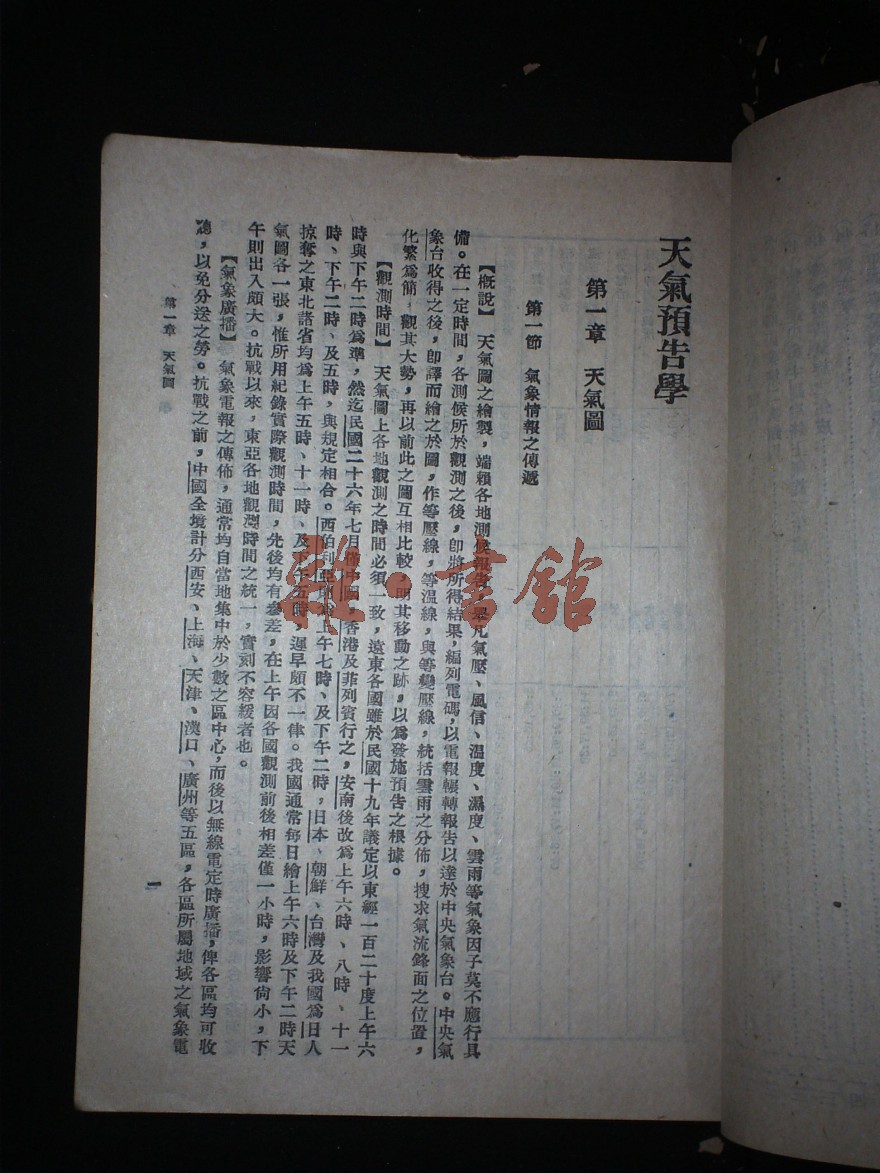 天氣預告學
第一章　天氣圖
第一節　氣象情報之傳遞
【概說】　天氣圖之繪製，端賴各地測候報告，舉凡氣壓、風信、溫度、濕度、雲雨等氣象因子莫不應行具
備。在一定時間，各測候所於觀測之後，卽將所得結果，編列電碼，以電報輾轉報告以達於中央氣象台。中央氣
象台收得之後，卽譯而繪之於圖，作等壓線，等溫線，與等變壓線，統括雲雨之分佈，搜求氣流鋒面之位置，
化繁爲簡，觀其大勢，再以前此之圖互相比較，明其移動之跡，以爲發施預告之根據。
【觀測時間】　天氣圖上各地觀測之時間必須一致，遠東各國雖於民國十九年議定以東經一百二十度上午六
時與下午二時爲準，然迄民國二十六年七月僅中國、香港及菲列賓行之，安南後改爲上午六時、八時、十一
時、下午二時、及五時，與規定相合。西伯利亞則爲上午七時、及下午二時，日本、朝鮮、台灣及我國爲日人
掠奪之東北諸省均爲上午五時、十一時、及下午五時，遲早頗不一律。我國通常每日繪上午六時及下午二時天
氣圖各一張，惟所用紀錄實際觀測時間，先後均有參差，在上午因各國觀測前後相差僅一小時，影響尙小，下
午則出入頗大。抗戰以來，東亞各地觀測時間之統一，實刻不容緩者也。
【氣象廣播】　氣象電報之傳佈，通常均自當地集中於少數之區中心，而後以無線電定時廣播，俾各區均可收
聽，以免分送之勞。抗戰之前，中國全境計分西安、上海、天津、漢口、廣州等五區，各區所屬地域之氣象電
第一章　天氣圖
一
雜·書館